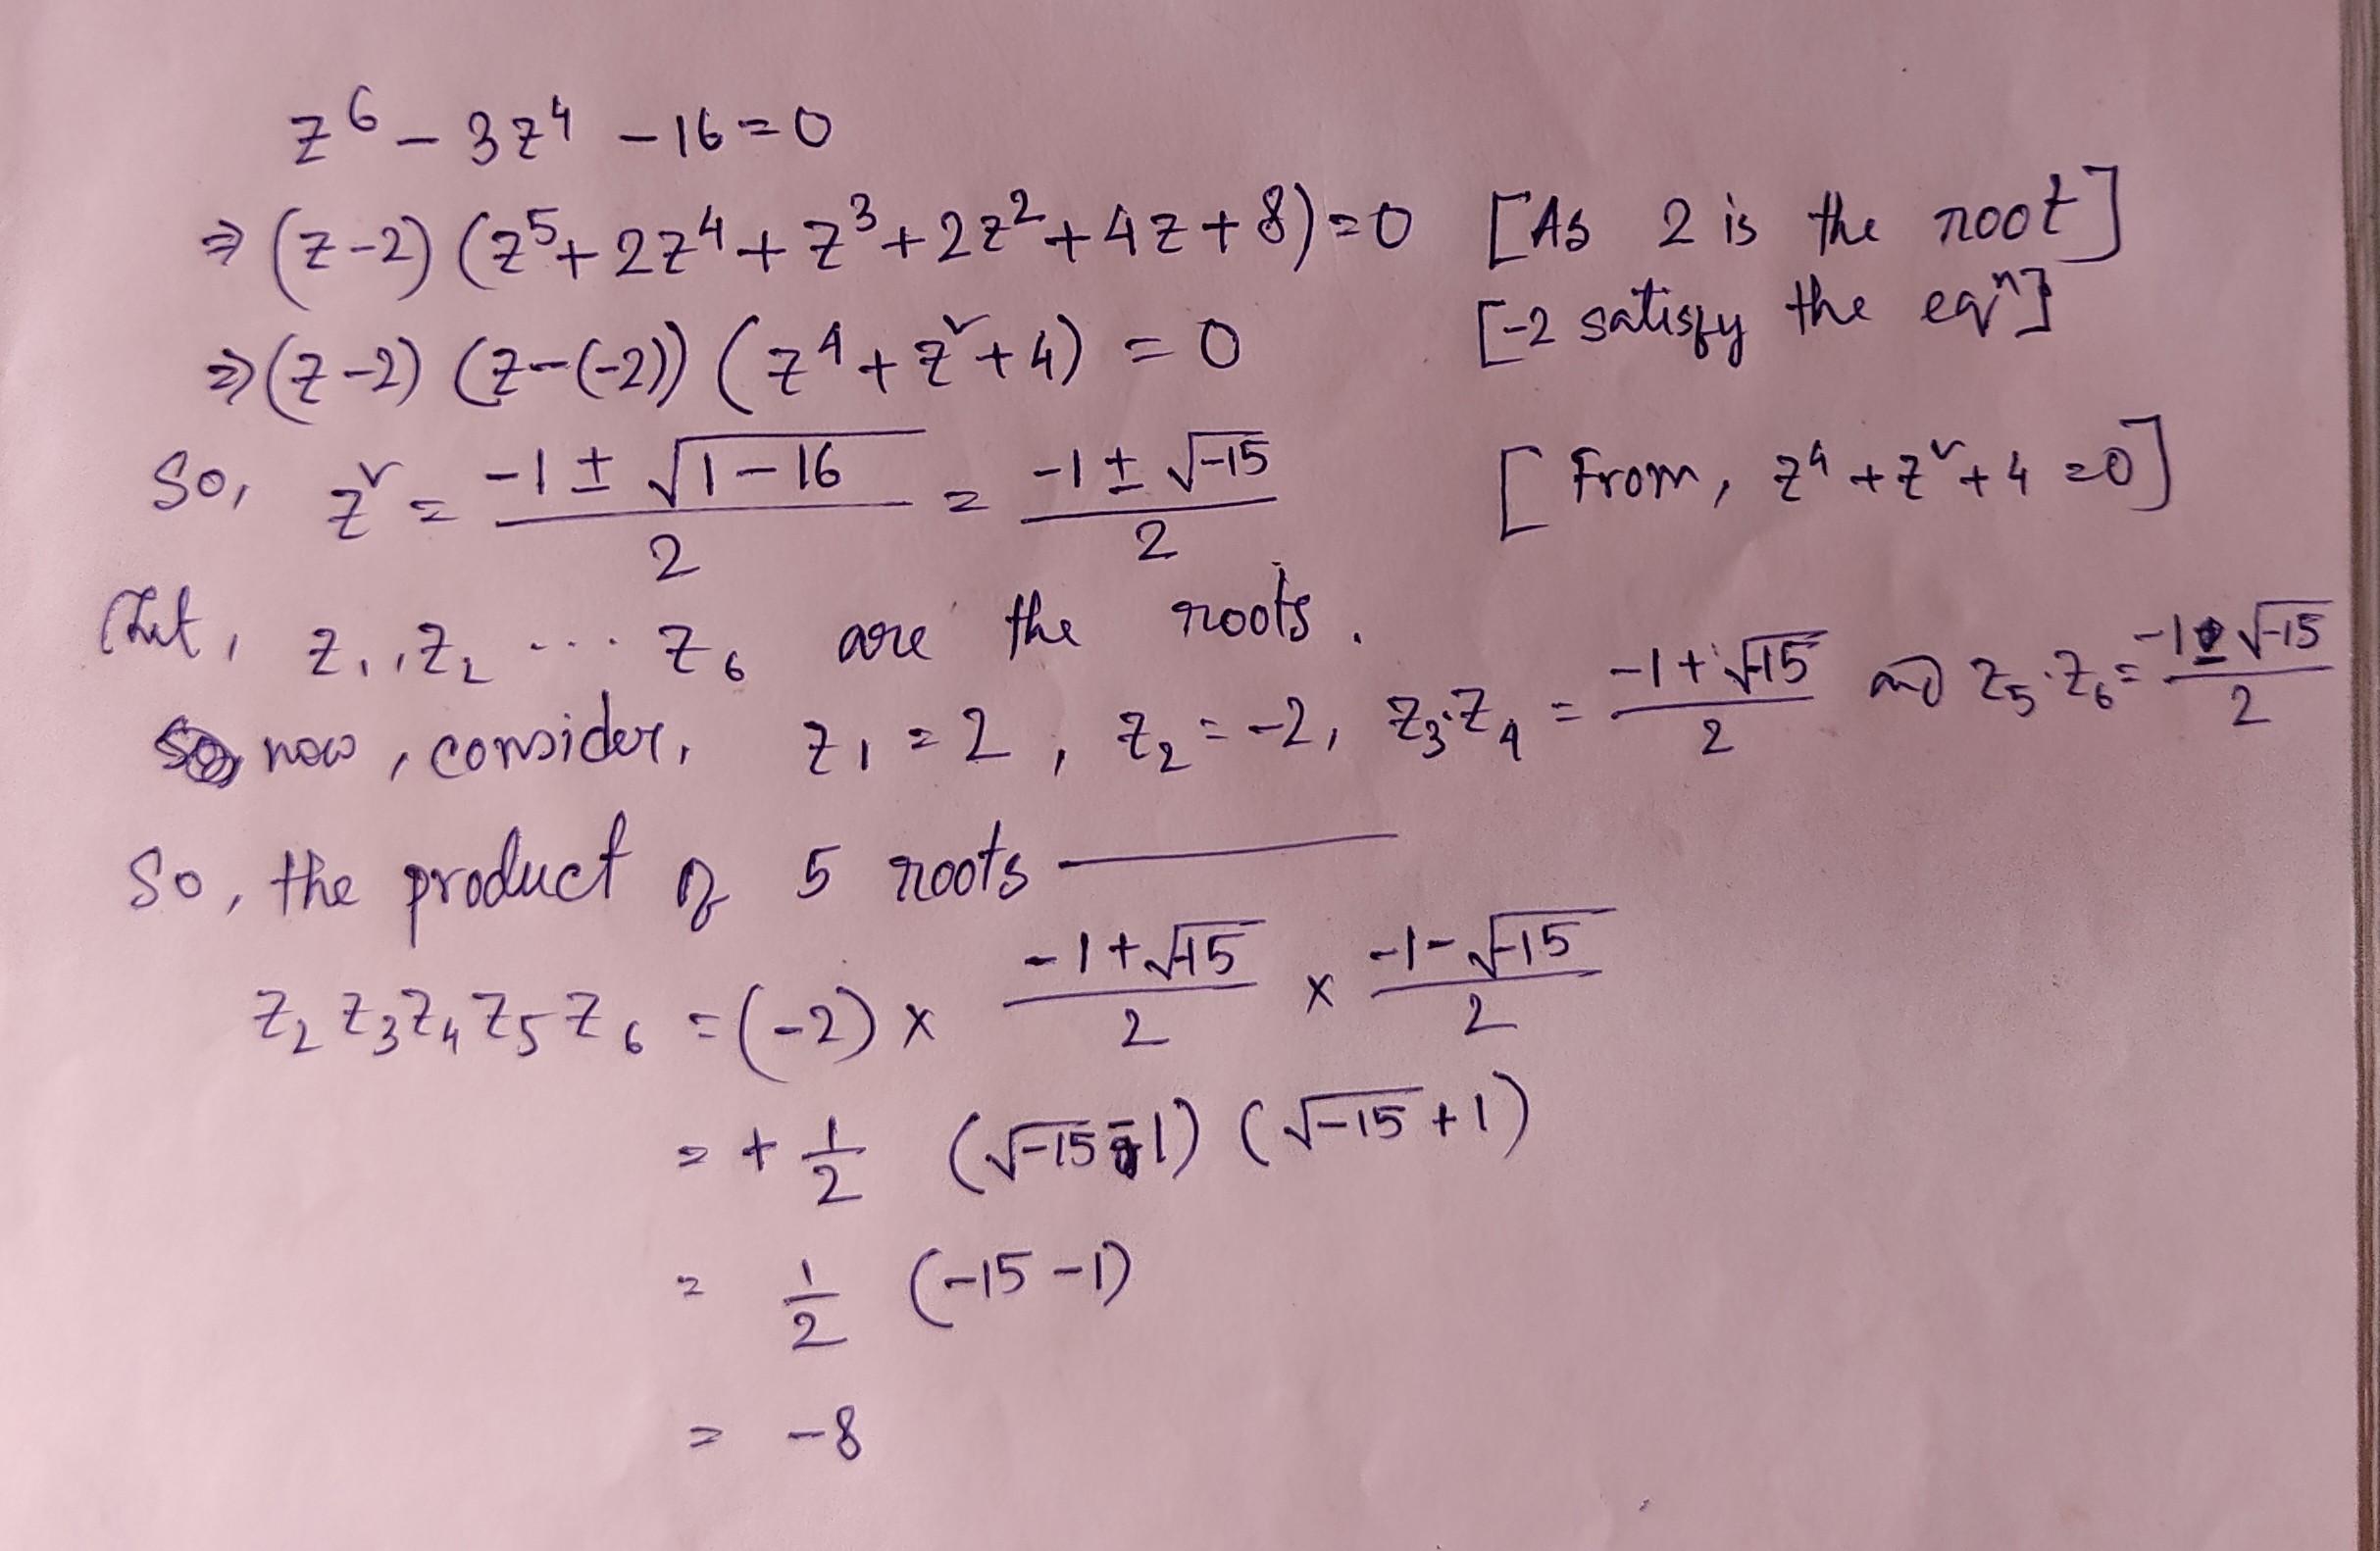 z⁶ − 3z⁴ − 16 = 0
⇒ (z−2) (z⁵ + 2z⁴ + z³ + 2z² + 4z + 8) = 0 [As 2 is the root]
⇒ (z−2) (z−(−2)) (z⁴ + z² + 4) = 0 [−2 satisfy the eqⁿ]
So, z² = (−1 ± √(1−16))/2 = (−1 ± √−15)/2 [From, z⁴ + z² + 4 = 0]
Let, z₁, z₂ .... z₆ are the roots.
now, consider, z₁ = 2, z₂ = −2, z₃·z₄ = (−1+√−15)/2 and z₅·z₆ = (−1−√−15)/2
So, the product of 5 roots —
z₂ z₃ z₄ z₅ z₆ = (−2) × (−1+√−15)/2 × (−1−√−15)/2
= + 1/2 (√−15 − 1) (√−15 + 1)
= 1/2 (−15 − 1)
= −8